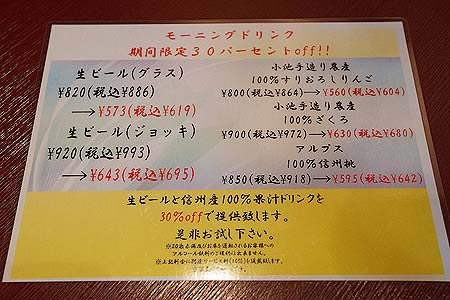 モーニングドリンク
期間限定30パーセントoff!!
生ビール(グラス)
¥820(税込¥886)
→¥573(税込¥619)
生ビール(ジョッキ)
¥920(税込¥993)
→¥643(税込¥695)
小池手造り農産
100%すりおろしりんご
¥800(税込¥864)→¥560(税込¥604)
小池手造り農産
100%ざくろ
¥900(税込¥972)→¥630(税込¥680)
アルプス
100%信州桃
¥850(税込¥918)→¥595(税込¥642)
生ビールと信州産100%果汁ドリンクを
30%offで提供致します。
是非お試し下さい。
※20歳未満及びお車を運転されるお客様への
アルコール飲料のご提供は出来ません。
※上記料金に別途サービス料(10%)を頂戴致します。